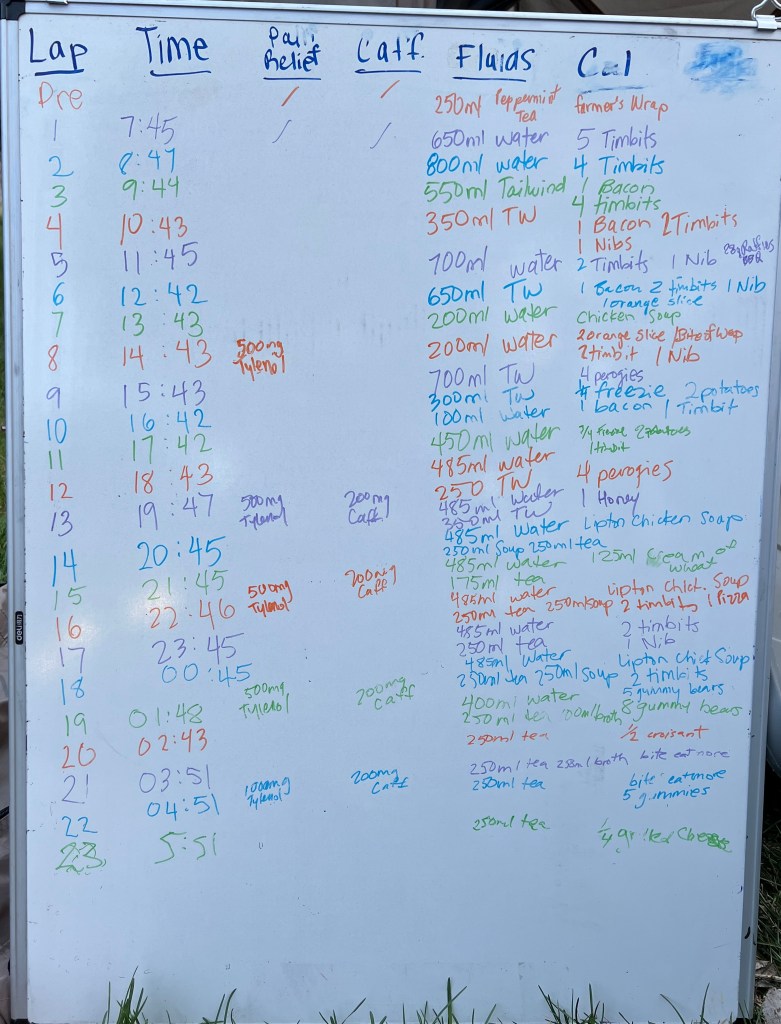 Lap Time Pain Relief Caff. Fluids Cal
Pre / / 250ml Peppermint Tea farmer's Wrap
1 7:45 / / 650ml water 5 Timbits
2 8:47 800ml water 4 Timbits
3 9:44 550ml Tailwind 1 Bacon 4 timbits
4 10:43 350ml TW 1 Bacon 2 Timbits 1 Nibs
5 11:45 700ml water 2 Timbits 1 Nib
6 12:42 650ml TW 1 Bacon 2 timbits 1 Nib 1 orange slice
7 13:43 200ml water chicken soup
8 14:43 500mg Tylenol 200ml water 2 orange slice 1 Bite of Wrap 2 timbit 1 Nib
9 15:43 700ml TW 4 perogies
300ml TW freezie 2 potatoes
10 16:42 100ml water 1 bacon 1 Timbit
11 17:42 450ml water 3/4 2 potatoes 1 timbit
12 18:43 485ml water 250 TW 4 perogies
13 19:47 500mg Tylenol 200mg Caff. 485ml water ml TW 1 Honey
14 20:45 485ml water Lipton chicken Soap 250ml Soup 250ml tea
15 21:45 485ml water 175ml tea 125ml Cream of wheat
16 22:46 500mg Tylenol 200mg Caff 485ml water Lipton Chick. Soup 250ml tea 250ml soup 2 timbits 1 Pizza
17 23:45 485ml water 250ml tea 2 timbits 1 Nib
18 00:45 485ml water Lipton Chick Soup 250ml tea 250ml soup 2 timbits 5 gummy bears
19 01:48 500mg Tylenol 200mg Caff 400ml water 250ml tea broth 8 gummy bears
20 02:43 250ml tea 1/2 croisant
21 03:51 250ml tea 250ml broth bite eatmore
22 04:51 1000mg Tylenol 200mg Caff 250ml tea bite eatmore 5 gummies
23 5:51 250ml tea 1/4 grilled Cheese
deli